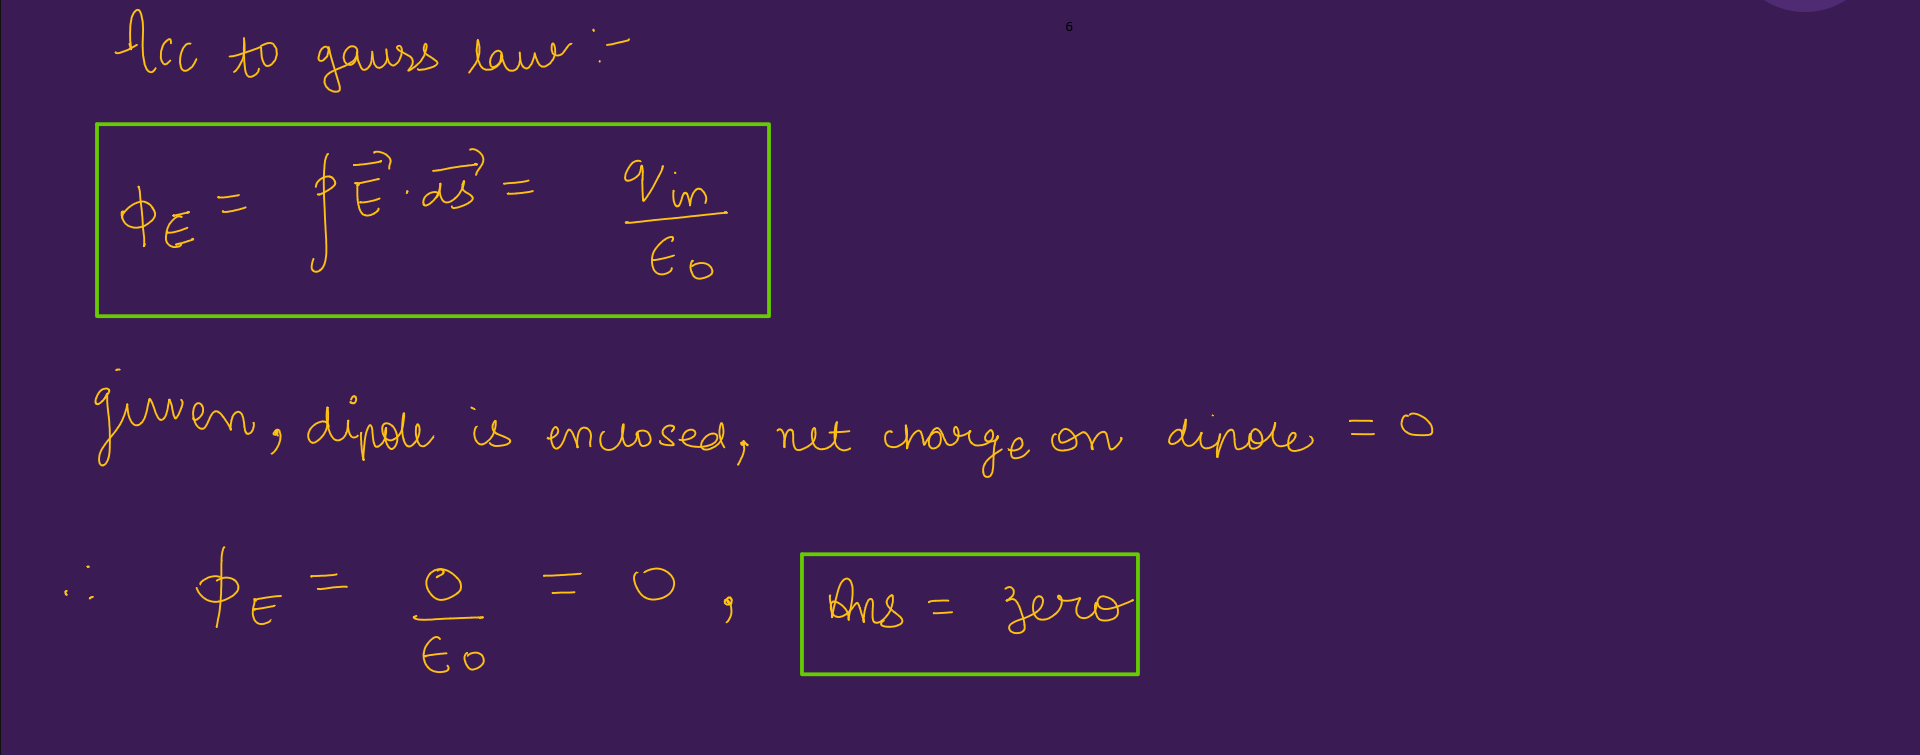 6
Acc to gauss law :-
ϕ_E = ∮ E⃗ · ds⃗ = q_in / ε_0
given, dipole is enclosed, net charge on dipole = 0
∴ ϕ_E = 0 / ε_0 = 0 , Ans = zero